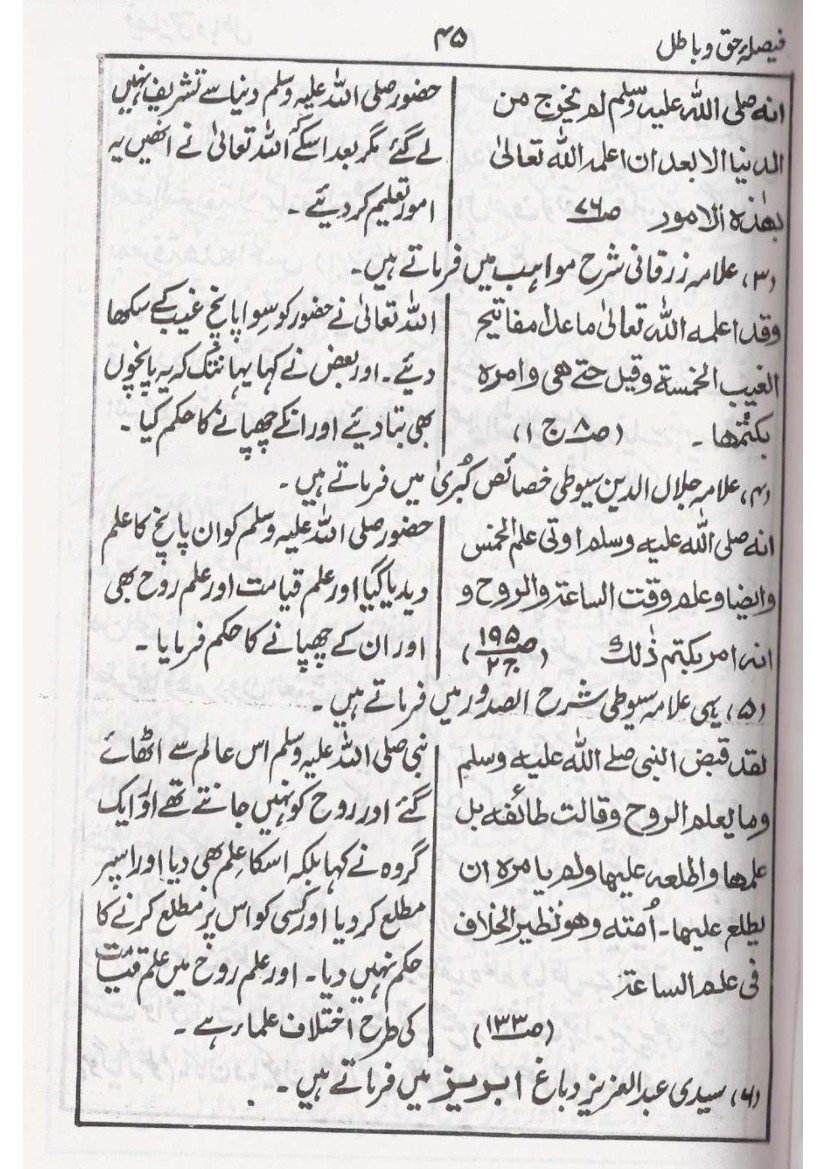 فیصلہ حق و باطل
۴۵
انہ صلی اللہ علیہ وسلم لم یخرج من
الدنیا الا بعد ان اعلمہ اللہ تعالیٰ
بھٰذہ الامور ص۷۶
حضور صلی اللہ علیہ وسلم دنیا سے تشریف نہیں
لے گئے مگر بعد اسکے اللہ تعالیٰ نے انھیں یہ
امور تعلیم کر دیئے۔
(۳) علامہ زرقانی شرح مواہب میں فرماتے ہیں۔
وقد اعلمہ اللہ تعالیٰ ما عدا مفاتیح
الغیب الخمسۃ وقیل حتے ھی وامرہ
بکتمھا۔ (ص۸ ج۱)
اللہ تعالیٰ نے حضور کو سوا پانچ غیب کے سکھا
دیئے۔ اور بعض نے کہا یہانتک کہ یہ پانچوں
بھی بتا دیے اور انکے چھپانے کا حکم کیا۔
(۴) علامہ جلال الدین سیوطی خصائص کُبریٰ میں فرماتے ہیں۔
انہ صلی اللہ علیہ وسلم اوتی علم الخمس
وایضا وعلم وقت الساعۃ والروح و
انہ امر بکتم ذٰلک (ص۱۹۵ ج۲)
حضور صلی اللہ علیہ وسلم کو ان پانچ کا علم
دیدیا گیا اور علم قیامت اور علم روح بھی
اور ان کے چھپانے کا حکم فرمایا۔
(۵) یہی علامہ سیوطی شرح الصدور میں فرماتے ہیں۔
لقد قبض النبی صلے اللہ علیہ وسلم
وما یعلم الروح وقالت طائفہ بل
علمھا واطلعہ علیھا ولم یامرہ ان
یطلع علیھا۔ اُمتہ وھو نظیر الخلاف
فی علم الساعۃ
(ص۱۳۳)
نبی صلی اللہ علیہ وسلم اس عالم سے اٹھائے
گئے اور روح کو نہیں جانتے تھے اور ایک
گروہ نے کہا بلکہ اسکا علم بھی دیا اور اسپر
مطلع کر دیا اور کسی کو اس پر مطلع کرنے کا
حکم نہیں دیا۔ اور علم روح میں علم قیامت
کی طرح اختلاف علماء ہے۔
(۶) سیدی عبدالعزیز دباغ ابریز میں فرماتے ہیں۔